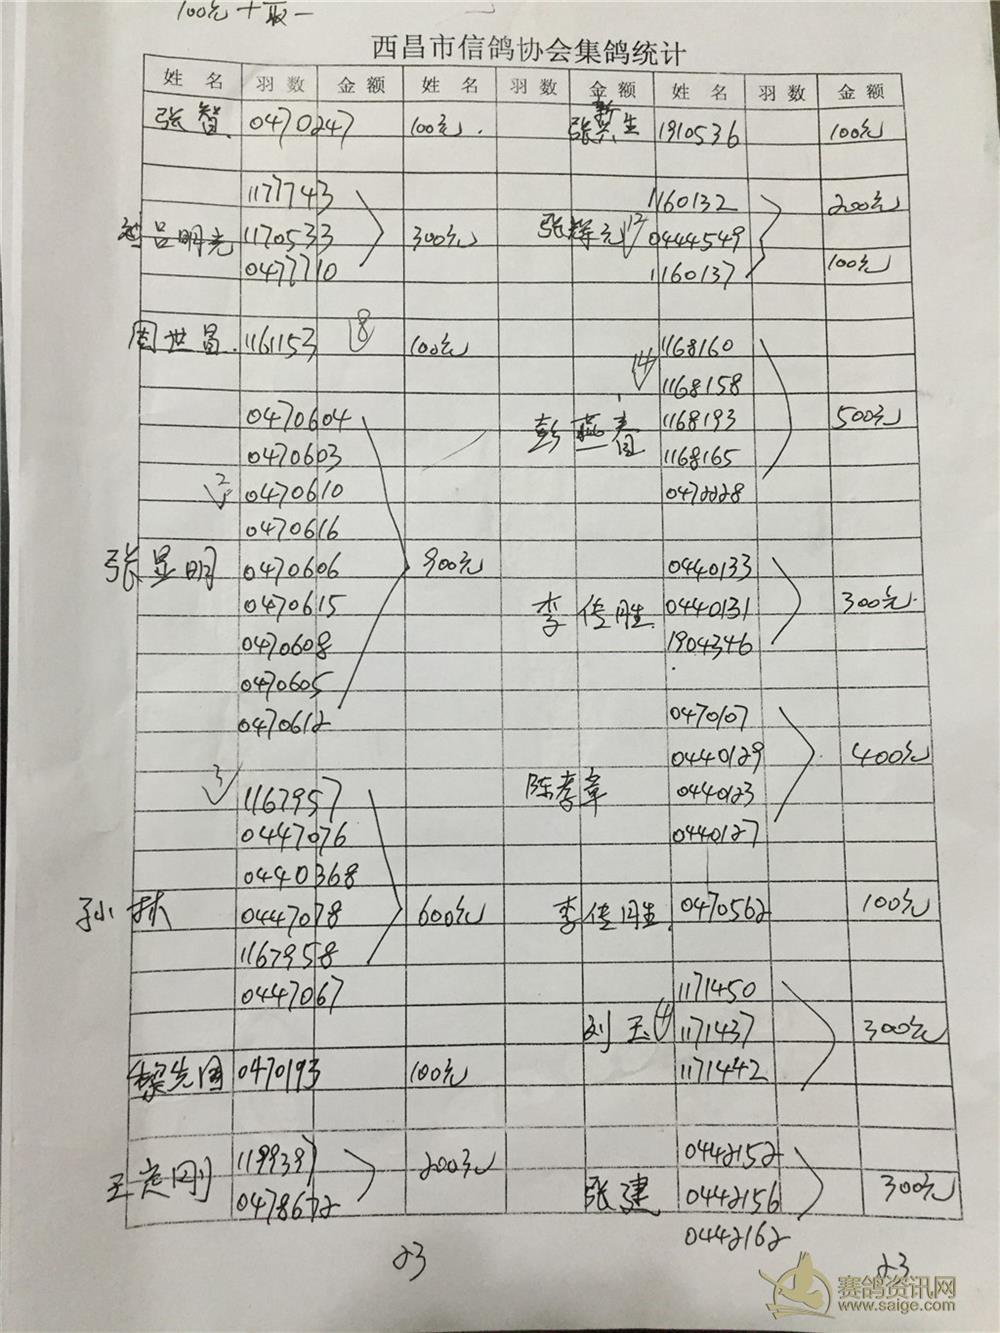 100元十取一
西昌市信鸽协会集鸽统计
姓 名 羽 数 金 额 姓 名 羽 数 金 额 姓 名 羽 数 金 额
张智. 0470247 100元.
1177743
吕明光 1170533 300元
0477710
周世昌. 1161153 8 100元
0470604
0470603
2 0470610
0470616
张显明 0470606 900元
0470615
0470608
0470605
0470612
3 1167957
0447076
0440368
孙林 0447078 600元
1167958
0447067
黎先国 0470193 100元
1199397
王定刚 0478672 200元
23
张新生 1910536 100元
1160132 200元
张辉元 12 0444549
1160137 100元
14 1168160
1168158
彭燕春 1168193 500元
1168165
0472228
0440133
李传胜. 0440131 300元.
1904346
0470107
0440129 400元
陈孝章 0440123
0440127
李传胜. 0470562 100元
1171450
刘玉 4 1171437 300元
1171442
0442152
张建 0442156 300元
0442162
23
赛鸽资讯网
www.saige.com